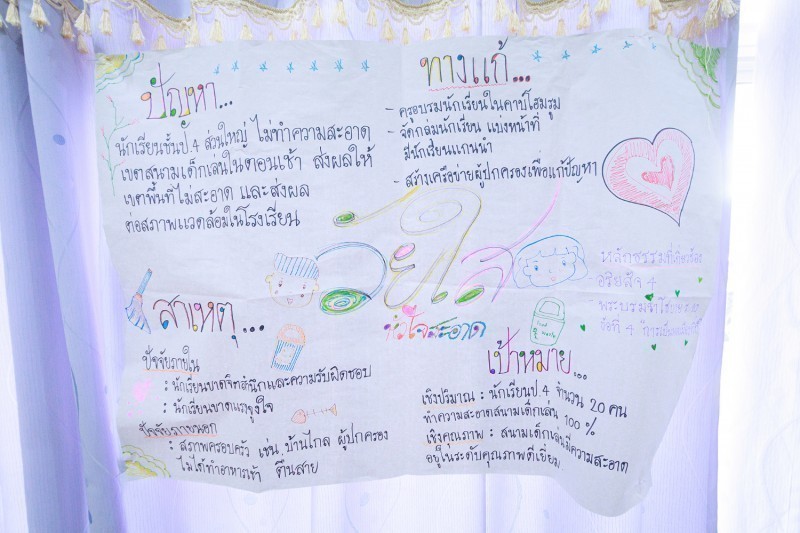 ปัญหา...
นักเรียนชั้นป.4 ส่วนใหญ่ ไม่ทำความสะอาด
เขตสนามเด็กเล่นในตอนเช้า ส่งผลให้
เขตพื้นที่ไม่สะอาด และส่งผล
ต่อสภาพแวดล้อมในโรงเรียน
ทางแก้...
- ครูอบรมนักเรียนในคาบโฮมรูม
- จัดกลุ่มนักเรียน แบ่งหน้าที่
มีนักเรียนแกนนำ
- สร้างเครือข่ายผู้ปกครองเพื่อแก้ปัญหา
วัยใส
หัวใจสะอาด
หลักธรรมที่เกี่ยวข้อง
อริยสัจ 4
ข้อที่ 4
สาเหตุ...
ปัจจัยภายใน
: นักเรียนขาดจิตสำนึกและความรับผิดชอบ
: นักเรียนขาดแรงจูงใจ
ปัจจัยภายนอก
: สภาพครอบครัว เช่น บ้านไกล ผู้ปกครอง
ไม่ได้ทำอาหารเช้า ตื่นสาย
เป้าหมาย...
เชิงปริมาณ : นักเรียนป.4 จำนวน 20 คน
ทำความสะอาดสนามเด็กเล่น 100 %
เชิงคุณภาพ : สนามเด็กเล่นมีความสะอาด
อยู่ในระดับคุณภาพดีเยี่ยม